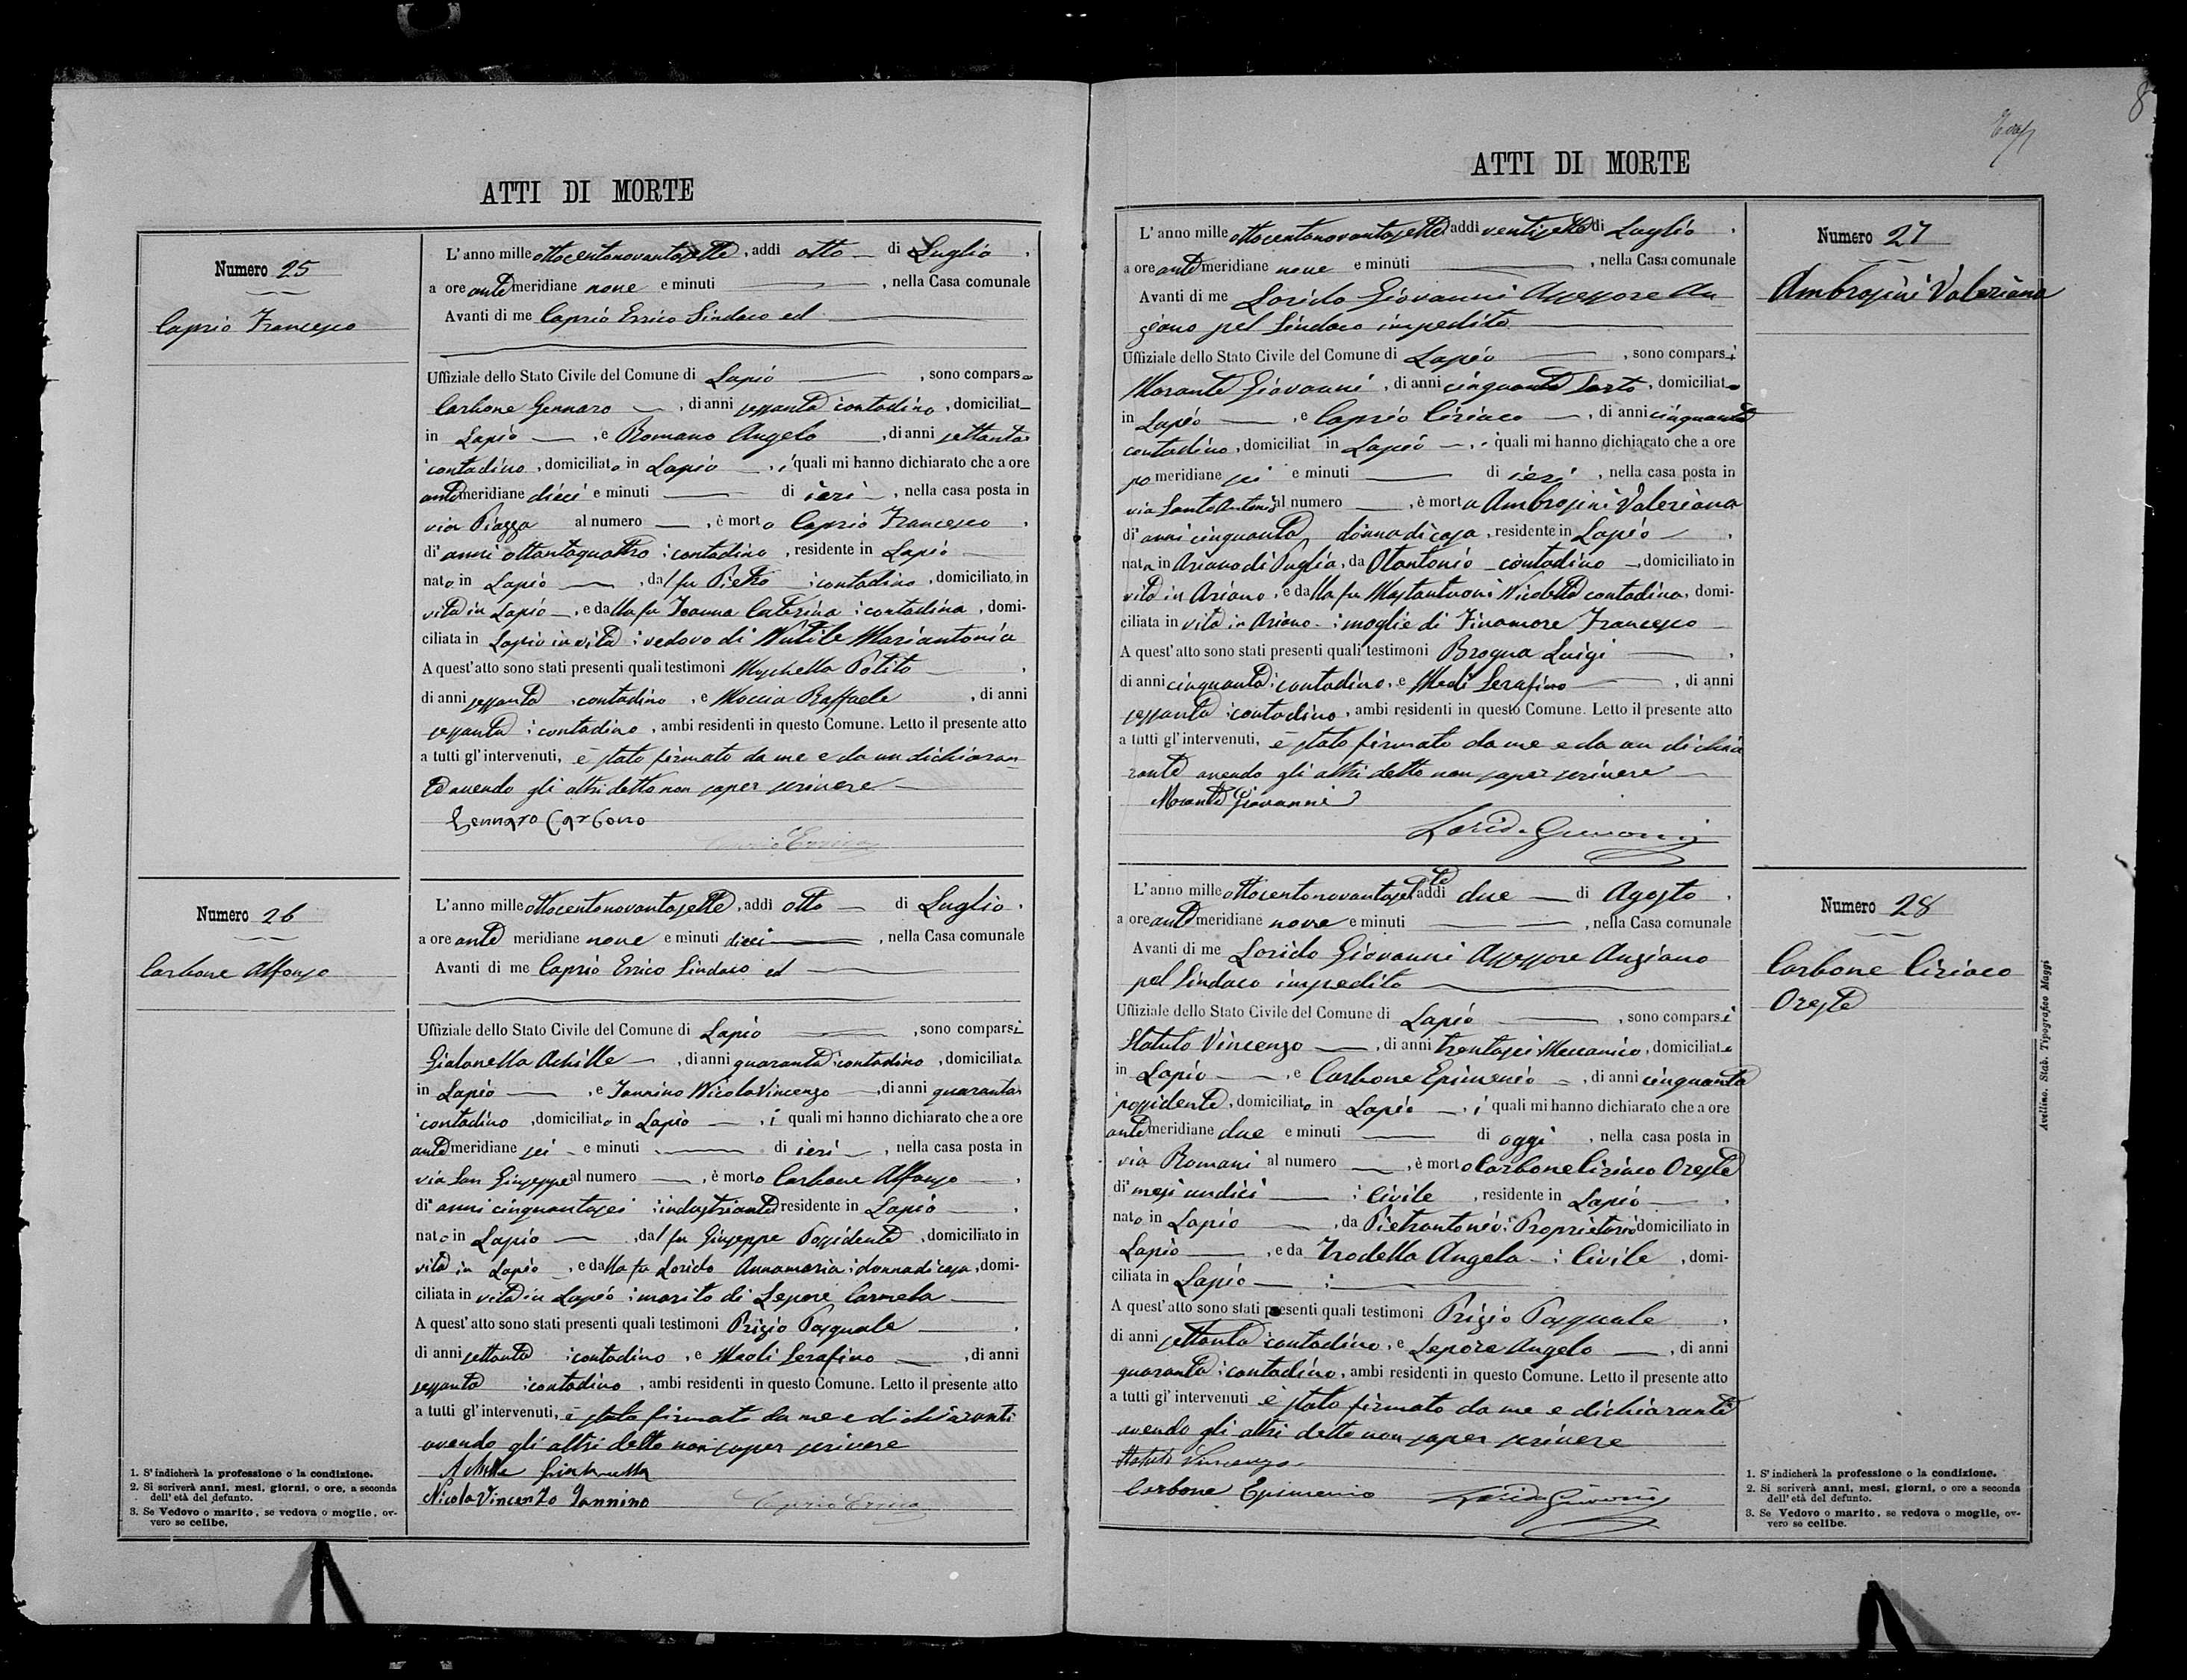 ATTI DI MORTE
Numero 25
Caprio Francesco
L'anno mille ottocentonovantasette, addi otto di Luglio,
a ore ante meridiane nove e minuti , nella Casa comunale
Avanti di me Caprio Errico Sindaco ed
Uffiziale dello Stato Civile del Comune di Lapio , sono compars
Carbone Gennaro , di anni sessanta contadino, domiciliat
in Lapio , e Romano Angelo , di anni settanta
contadino, domiciliato in Lapio , i quali mi hanno dichiarato che a ore
ante meridiane dieci e minuti di ieri , nella casa posta in
via Piazza al numero , è morto Caprio Francesco ,
di anni ottantaquattro : contadino , residente in Lapio
nato in Lapio , dal fu Pietro : contadino , domiciliato in
vita in Lapio , e dalla fu Ioanna Caterina : contadina , domi-
ciliata in Lapio in vita : vedovo di Nutile Mariantonia
A quest'atto sono stati presenti quali testimoni Muschella Potito ,
di anni sessanta , contadino , e Moccia Raffaele , di anni
sessanta : contadino , ambi residenti in questo Comune. Letto il presente atto
a tutti gl'intervenuti, è stato firmato da me e da un dichiaran
te avendo gli altri detto non saper scrivere
Gennaro Carbone
Caprio Errico
Numero 26
Carbone Alfonso
L'anno mille ottocentonovantasette, addi otto di Luglio,
a ore ante meridiane nove e minuti dieci , nella Casa comunale
Avanti di me Caprio Errico Sindaco ed
Uffiziale dello Stato Civile del Comune di Lapio , sono comparsi
Gialanella Achille , di anni quaranta : contadino , domiciliato
in Lapio , e Iannino Nicola Vincenzo , di anni quaranta
contadino , domiciliato in Lapio , i quali mi hanno dichiarato che a ore
ante meridiane sei e minuti di ieri , nella casa posta in
via San Giuseppe al numero , è morto Carbone Alfonso ,
di anni cinquantasei : industriante residente in Lapio ,
nato in Lapio , dal fu Giuseppe Possidente , domiciliato in
vita in Lapio , e dalla fu Lorido Annamaria : donna di casa , domi-
ciliata in vita in Lapio : marito di Lepore Carmela
A quest'atto sono stati presenti quali testimoni Prizio Pasquale ,
di anni settanta : contadino , e Meoli Serafino , di anni
sessanta : contadino , ambi residenti in questo Comune. Letto il presente atto
a tutti gl'intervenuti, è stato firmato da me e dichiaranti
avendo gli altri detto non saper scrivere
Achille Gialanella
Nicola Vincenzo Iannino Caprio Errico
1. S'indicherà la professione o la condizione.
2. Si scriverà anni, mesi, giorni, o ore, a seconda
dell'età del defunto.
3. Se Vedovo o marito, se vedova o moglie, ov-
vero se celibe.
8
ATTI DI MORTE
L'anno mille ottocentonovantasette, addi ventisette di Luglio ,
a ore ante meridiane nove e minuti , nella Casa comunale
Avanti di me Lorido Giovanni Assessore An
ziano pel Sindaco impedito
Uffiziale dello Stato Civile del Comune di Lapio , sono comparsi
Morante Giovanni , di anni cinquanta Sarto , domiciliato
in Lapio , e Caprio Ciriaco , di anni cinquanta
contadino , domiciliat in Lapio , i quali mi hanno dichiarato che a ore
po meridiane sei e minuti di ieri , nella casa posta in
via Santo Antonio al numero , è morta Ambrosini Valeriana
di anni cinquanta, donna di casa , residente in Lapio ,
nata in Ariano di Puglia , da Otantonio contadino , domiciliato in
vita in Ariano , e dalla fu Mastantuoni Nicoletta contadina , domi-
ciliata in vita in Ariano : moglie di Finamore Francesco
A quest'atto sono stati presenti quali testimoni Brogna Luigi ,
di anni cinquanta : contadino , e Meoli Serafino , di anni
sessanta : contadino , ambi residenti in questo Comune. Letto il presente atto
a tutti gl'intervenuti, è stato firmato da me e da un dichia
rante avendo gli altri detto non saper scrivere
Morante Giovanni
Lorido Giovanni
Numero 27
Ambrosini Valeriana
L'anno mille ottocentonovantasette addi due di Agosto ,
a ore ante meridiane nove e minuti , nella Casa comunale
Avanti di me Lorido Giovanni Assessore Anziano
pel Sindaco impedito
Uffiziale dello Stato Civile del Comune di Lapio , sono comparsi
Statuto Vincenzo , di anni trentasei Meccanico , domiciliato
in Lapio , e Carbone Epimenio , di anni cinquanta
possidente , domiciliato in Lapio , i quali mi hanno dichiarato che a ore
ante meridiane due e minuti di oggi , nella casa posta in
via Romani al numero , è morto Carbone Ciriaco Oreste
di mesi undici : Civile , residente in Lapio ,
nato in Lapio , da Pietrantonio : Proprietario domiciliato in
Lapio , e da Trodella Angela : Civile , domi-
ciliata in Lapio :
A quest'atto sono stati presenti quali testimoni Prizio Pasquale ,
di anni settanta : contadino , e Lepore Angelo , di anni
quaranta : contadino , ambi residenti in questo Comune. Letto il presente atto
a tutti gl'intervenuti è stato firmato da me e dichiaranti
avendo gli altri detto non saper scrivere
Statuto Vincenzo
Carbone Epimenio Lorido Giovanni
Numero 28
Carbone Ciriaco
Oreste
Avellino. Stab. Tipografico Maggi
1. S'indicherà la professione o la condizione.
2. Si scriverà anni, mesi, giorni, o ore a seconda
dell'età del defunto.
3. Se Vedovo o marito, se vedova o moglie, ov-
vero se celibe.